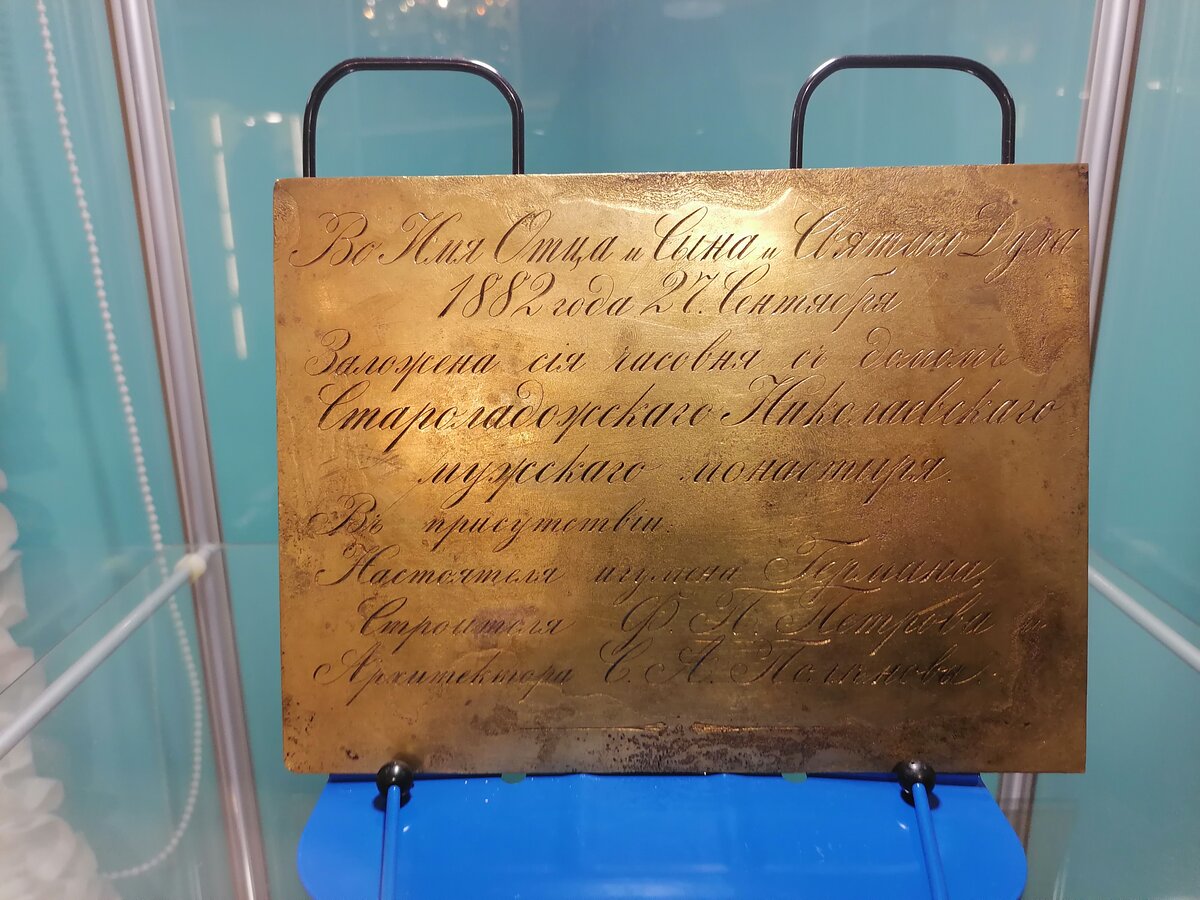 Во Имя Отца и Сына и Святаго Духа
1882 года 27. Сентября
Заложена сія часовня съ домомъ
Староладожскаго Николаевскаго
мужскаго монастыря.
Въ присутствіи.
Настоятеля игумена Германа,
Строителя Ф. П. Петрова и
Архитектора С. А. Полѣнова.